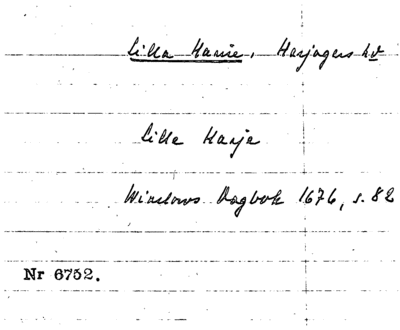 Lilla Harrie, Harjagers hd
Lille Harje
Winslows Dagbok 1676, s. 82
Nr 6752.